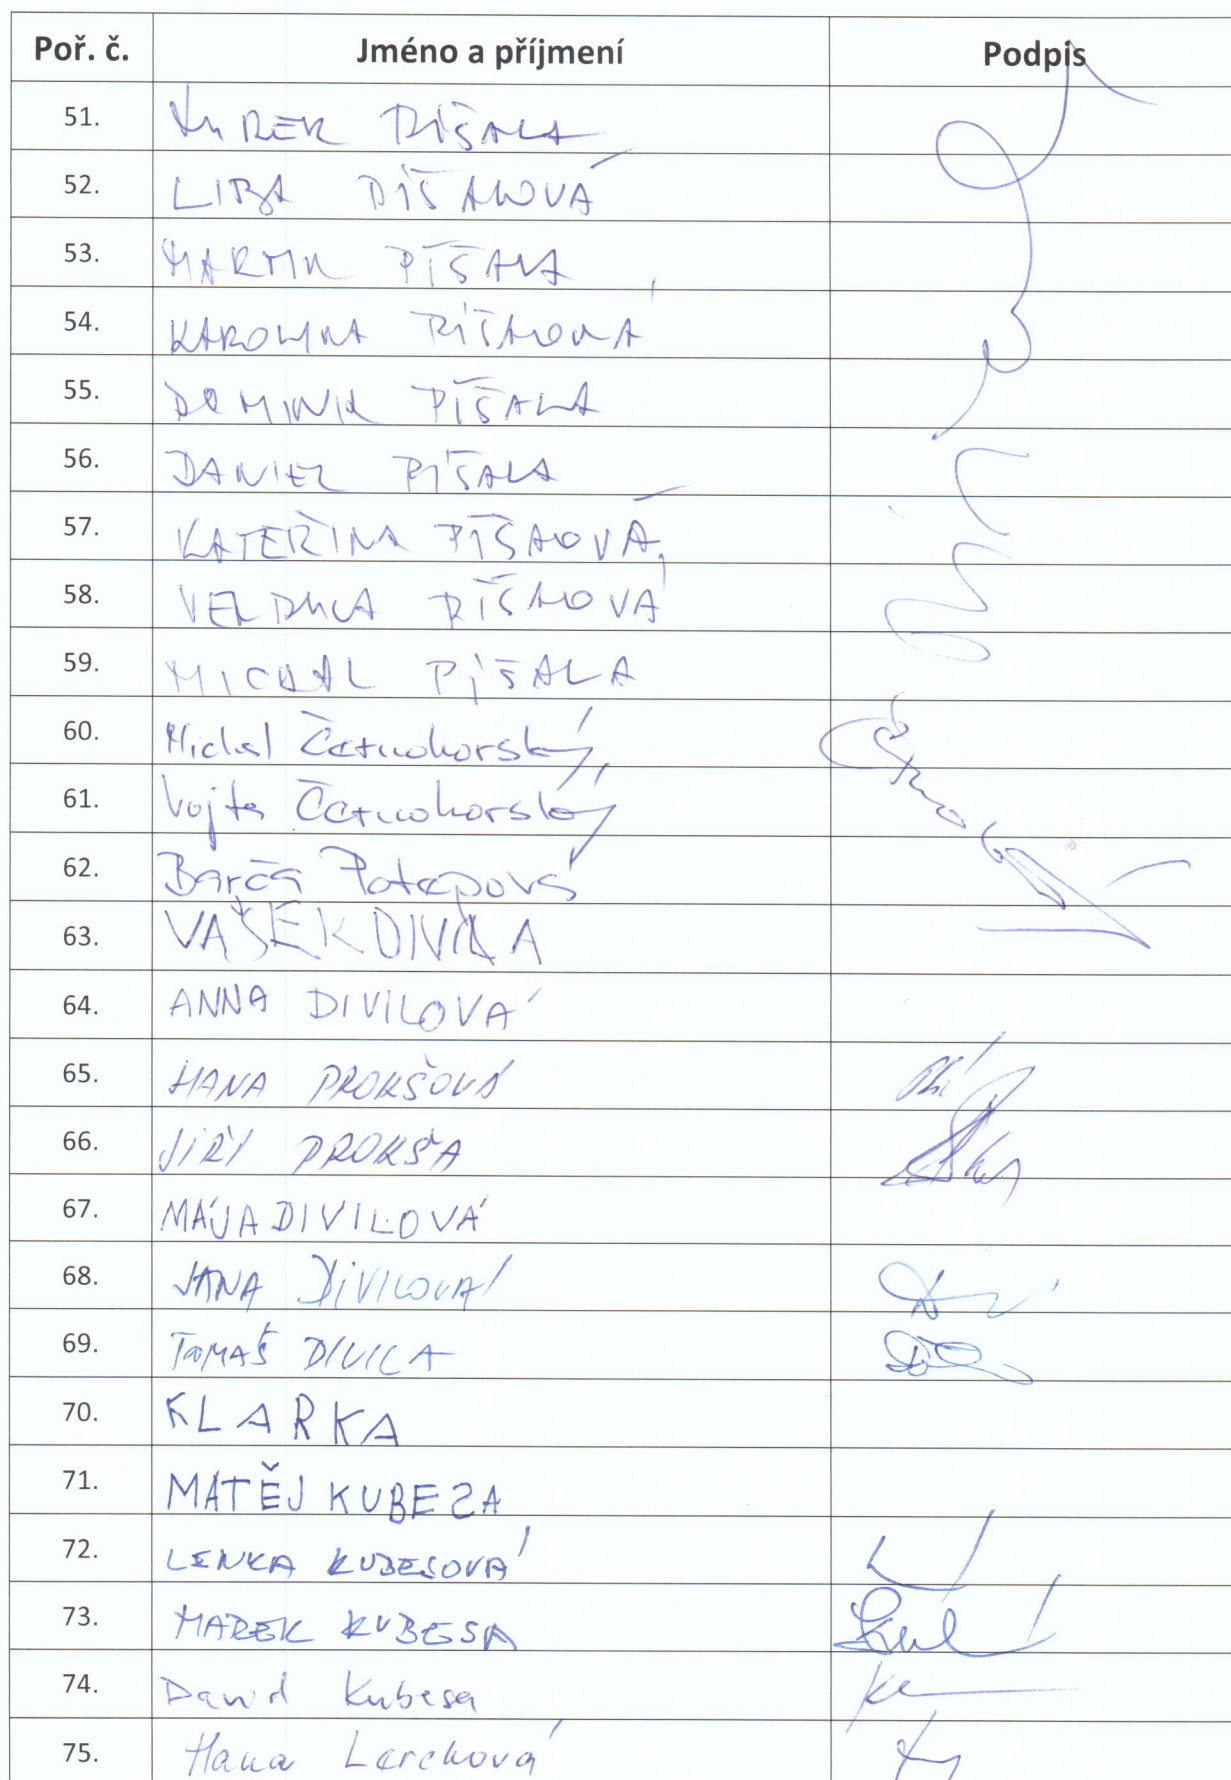 Poř. č. Jméno a příjmení Podpis
51. MAREK PÍŠALA
52. LIBA PÍŠALOVÁ
53. MARTIN PÍŠALA
54. KAROLINA PÍŠALOVÁ
55. DOMINIK PÍŠALA
56. DANIEL PÍŠALA
57. KATEŘINA PÍŠALOVÁ
58. VERONIKA PÍŠALOVÁ
59. MICHAL PÍŠALA
60. Michal Černohorský
61. Vojta Černohorský
62. Barča Potapová
63. VAŠEK DIVILA
64. ANNA DIVILOVÁ
65. HANA PROKŠOVÁ
66. JIŘÍ PROKŠA
67. MÁJA DIVILOVÁ
68. JANA DIVILOVÁ
69. TOMÁŠ DIVILA
70. KLARKA
71. MATĚJ KUBEZA
72. LENKA KUBESOVÁ
73. MAREK KUBESA
74. David Kubesa
75. Hana Lerchová